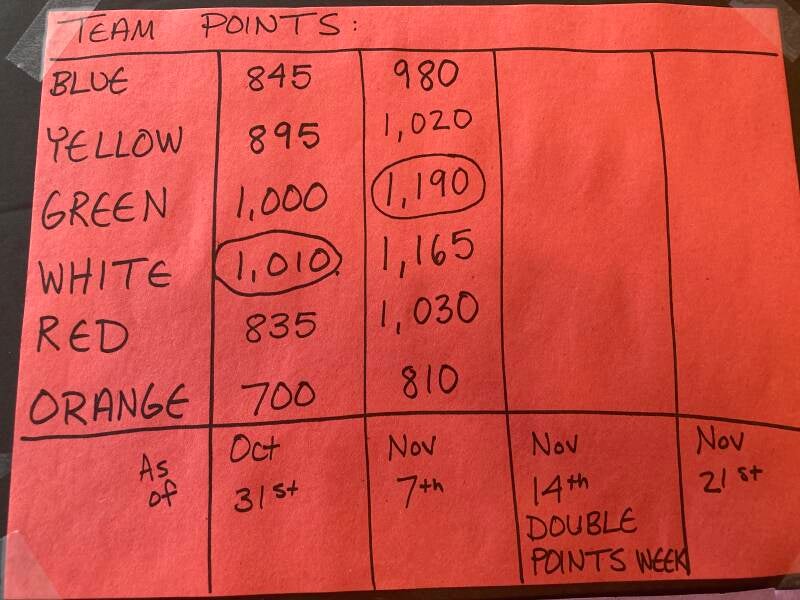 TEAM POINTS:
BLUE 845 980
YELLOW 895 1,020
GREEN 1,000 1,190
WHITE 1,010 1,165
RED 835 1,030
ORANGE 700 810
As of Oct 31st Nov 7th Nov 14th DOUBLE POINTS WEEK Nov 21st